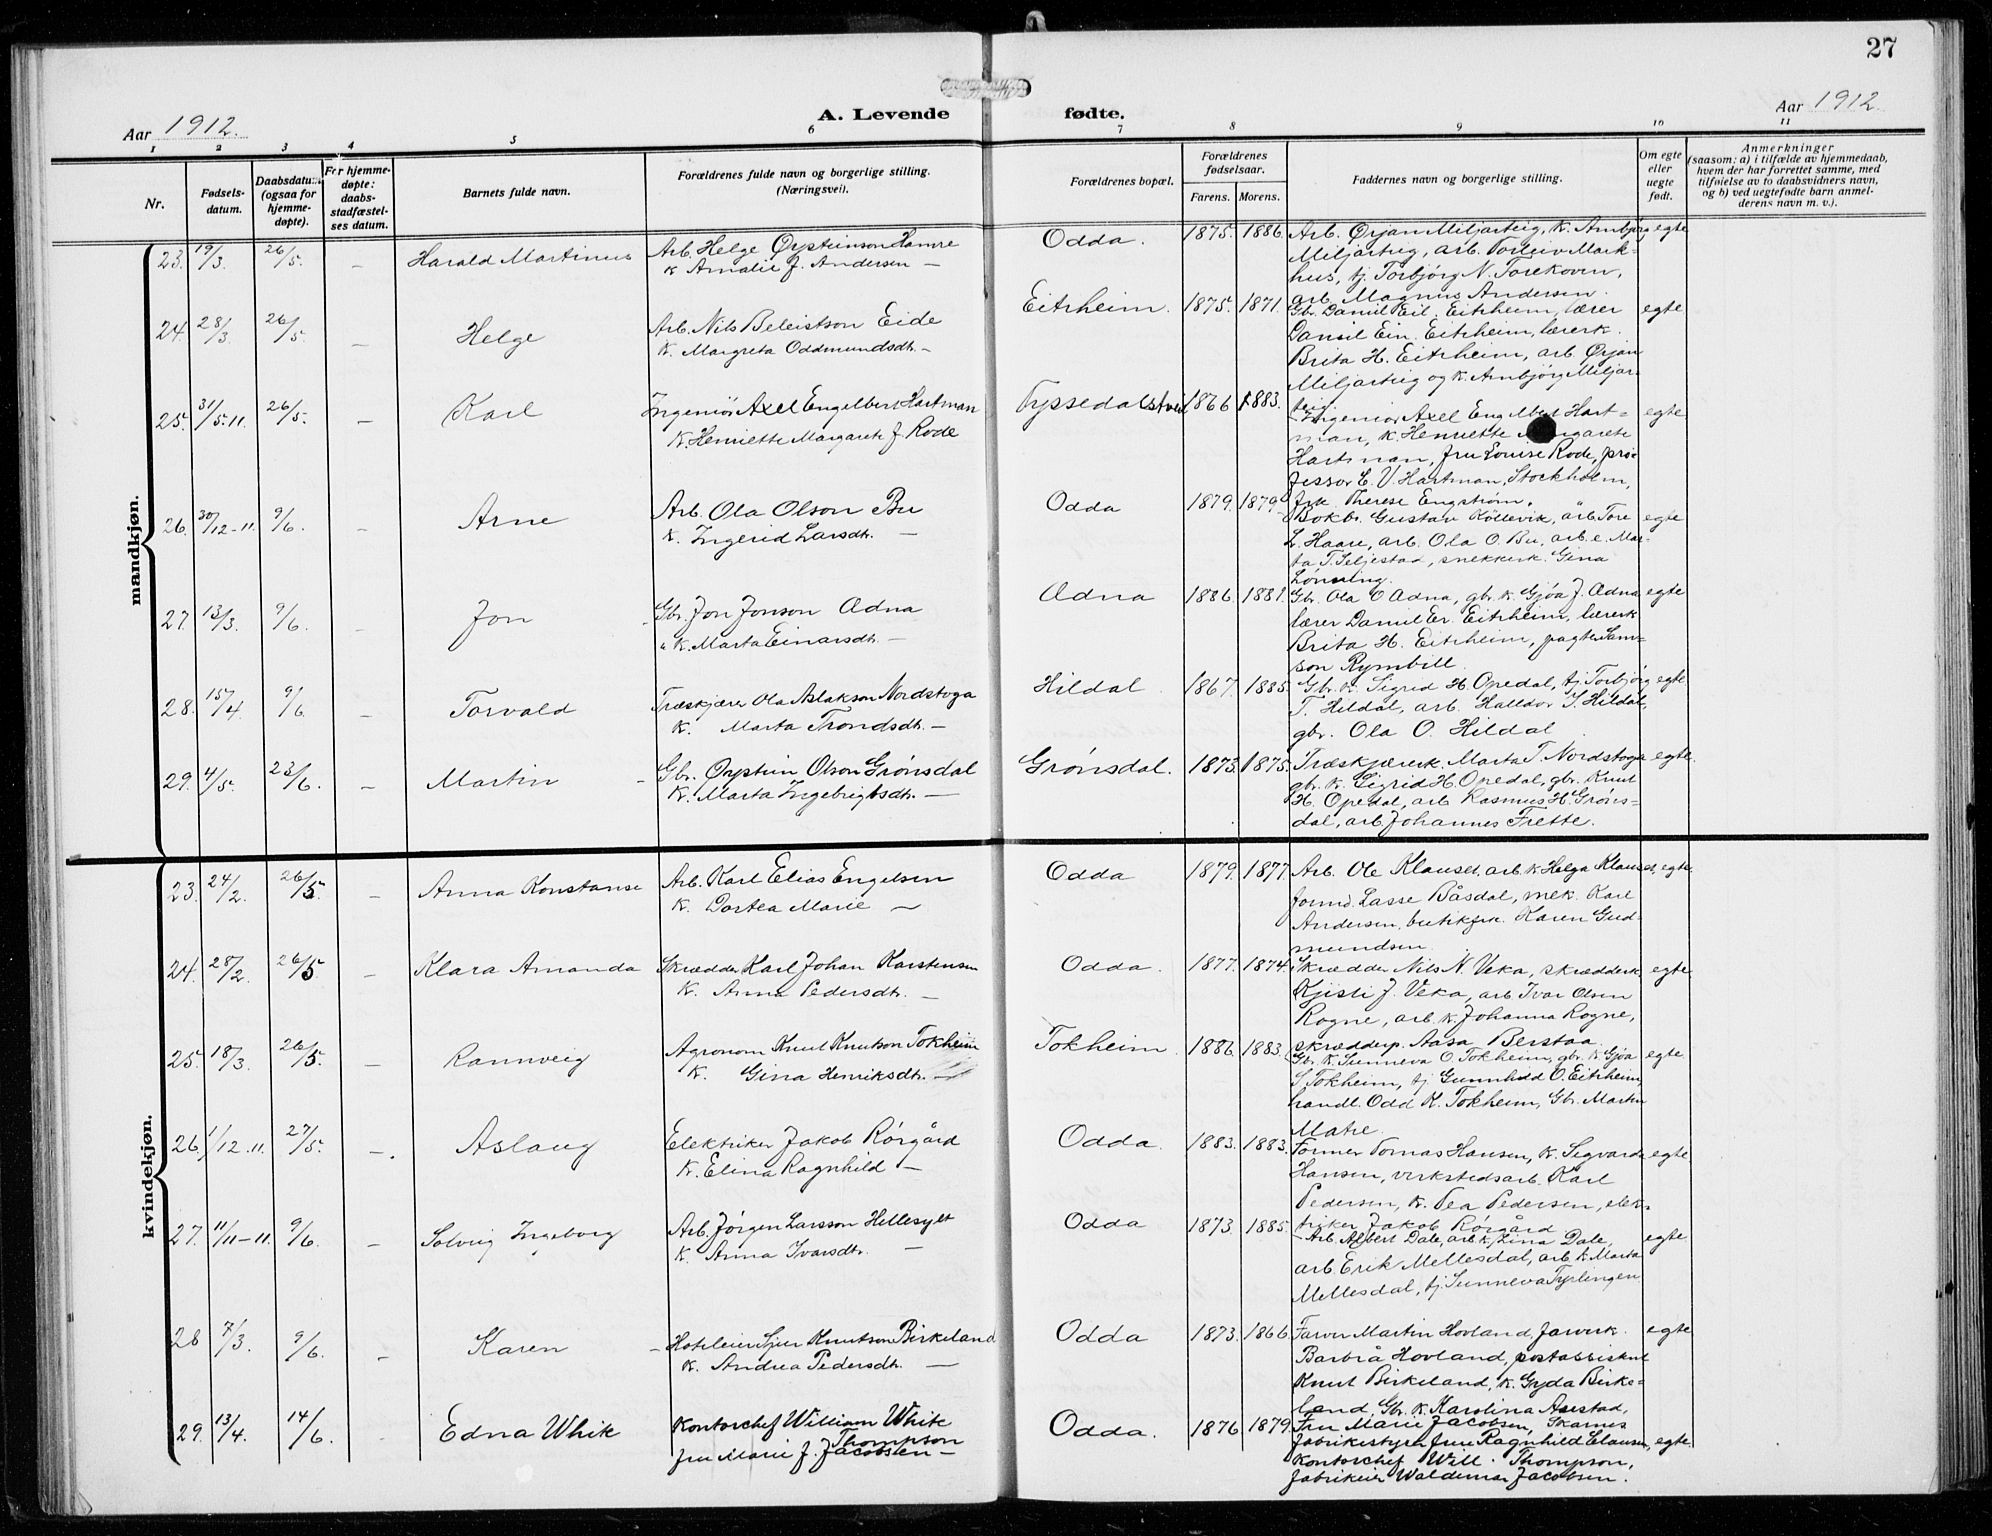 27
Aar 1912.
A. Levende fødte.
Aar 1912
1 2 3 4 5 6 7 8 9 10 11
Nr.
Fødsels-
datum.
Daabsdatum
(ogsaa for
hjemme-
døpte).
For hjemme-
døpte:
daabs-
stadfæstel-
ses datum.
Barnets fulde navn.
Forældrenes fulde navn og borgerlige stilling.
(Næringsvei).
Forældrenes bopæl.
Forældrenes
fødselsaar.
Farens. Morens.
Faddernes navn og borgerlige stilling.
Om egte
eller
uegte
født.
Anmerkninger
(saasom: a) i tilfælde av hjemmedaab,
hvem der har forrettet samme, med
tilføielse av to daabsvidners navn,
og b) ved uegtefødte barn anmel-
derens navn m. v.).
mandkjøn.
23. 19/3 26/5 – Harald Martinus
Arb. Helge Øysteinson Hamre
K. Amalie J. Andersen —
Odda. 1875. 1886.
Arb. Ørjan Miljarteig, K. Ambjørg
Miljarteig, arb. Torleiv Mark-
hus, tj. Torbjørg N. Torekoven,
arb. Magnus Andersen.
egte
24. 28/3 26/5 – Helge
Arb. Nils Beleistson Eide
K. Margreta Oddmundsdt. –
Eitrheim. 1875. 1871.
Gbr. Daniel Eil. Eitrheim, lærer
Daniel Ein. Eitrheim, lærerk.
Brita H. Eitrheim, arb. Ørjan
Miljarteig og K. Ambjørg Miljar-
teig.
egte
25. 31/5.11. 26/5. – Karl
Ingeniør Axel Engelbert Hartman
K. Henriette Margarete J. Rode
1866 1883.
Ingeniør Axel Engelbert Hart-
man, K. Henriette Margarete
Hartman, fru Louise Rode, pro-
fessor E. V. Hartman, Stockholm,
frk. Therese Engstrøm.
egte
26. 30/12-11. 9/6. – Arne
Arb. Ola Olson Bu
K. Ingerid Larsdt. –
Odda 1879. 1879
Bokb. Gustav Køllevik, arb. Tore
L. Haare, arb. Ola O. Bu, arb.e. Mar-
ta T. Seljestad, snekkerk. Gina
Lønning.
egte
27. 13/3. 9/6. – Jon
Gbr. Jon Jonson Ædna
" K. Marta Einarsdt. –
Ædna 1886. 1881.
Gbr. Ola O Ædna, gbr. K. Gjøa J. Ædna
lærer Daniel Er. Eitrheim, lærerk
Brita H. Eitrheim, pagter Sam-
son Rymbill.
egte
28. 15/4 9/6 – Torvald
Træskjærer Ola Aslakson Nordstoga
K. Marta Trondsdt. –
Hildal. 1867. 1885.
Gbr. K. Sigrid H. Opedal, tj. Torbjørg
T. Hildal, arb. Halldor T. Hildal,
gbr. Ola O. Hildal
egte
29. 4/5. 23/6. – Martin –
Gbr. Øystein Olson Grønsdal
K. Marta Ingebrigtsdt. —
Grønsdal. 1873. 1875.
Træskjærerk. Marta T. Nordstoga
gbr. K. Sigrid H. Opedal, gbr. Knut
H. Opedal, arb. Rasmus H. Grøns-
dal, arb. Johannes Frette.
egte.
kvindekjøn.
23. 24/2. 26/5. – Anna Konstanse
Arb. Karl Elias Engelsen
K. Dortea Marie —
Odda 1879. 1877.
Arb. Ole Klauset, arb. K. Helga Klauset,
formd. Lasse Båsdal, mek. Karl
Andersen, butikfrk. Karen Gud-
mundsen.
egte
24. 28/2. 26/5 – Klara Amanda
Skrædder Karl Johan Karstensen
K. Anna Pedersdt. —
Odda. 1877. 1874.
Skrædder Nils N. Veka, skrædderk.
Kjisti J. Veka, arb. Ivar Olsen
Rogne, arb. K. Johanna Rogne,
skrædderp. Aasa Berstaa.
egte
25. 18/3. 26/5. – Rannveig
Agronom Knut Knutson Tokheim
K. Gina Henriksdt. –
Tokheim 1886. 1883.
Gbr. K. Sunneva O. Tokheim, gbr. K. Gjøa
S. Tokheim, tj. Gunnhild O. Eitrheim,
handl. Odd K. Tokheim, Gbr. Martin
Matre.
egte
26 1/12.11. 27/5. –. Aslaug
Elektriker Jakob Rørgård
K. Elina Ragnhild –
Odda. 1883. 1883.
Former Tomas Hansen, K. Sigvarda
Hansen, verkstedsarb. Karl
Pedersen, K. Tea Pedersen, elek-
triker Jakob Rørgård.
egte.
27. 11/11-11. 9/6. – Solveig Ingeborg
Arb. Jørgen Larsson Hellesylt
K. Anna Ivarsdt. –
Odda 1873. 1885.
Arb. Albert Dale, arb. K. Lina Dale,
arb. Erik Mellesdal, arb. K. Marta
Mellesdal, tj. Sunneva Tyslingen.
egte
28 7/3. 9/6. – Karen
Knutson Birkeland
K. Andrea Pedersdt. —
Odda 1873. 1866.
Farver Martin Hovland, farverk.
Barbrå Hovland, postabbiskut
Knut Birkeland, K. Gyda Birke-
land, Gbr. K. Karolina Aasstad,
egte
29. 13/4. 14/6. – Edna White
Kontorchef William White
Thompson
fru Marie J. Jacobsen –
Odda. 1876 1879.
Fru Marie Jacobsen, Skarnes
fabrikestyrer fru Ragnhild Clausen,
Kontorchef Will. Thompson,
fabrikeier Waldemar Jacobsen.
egte.